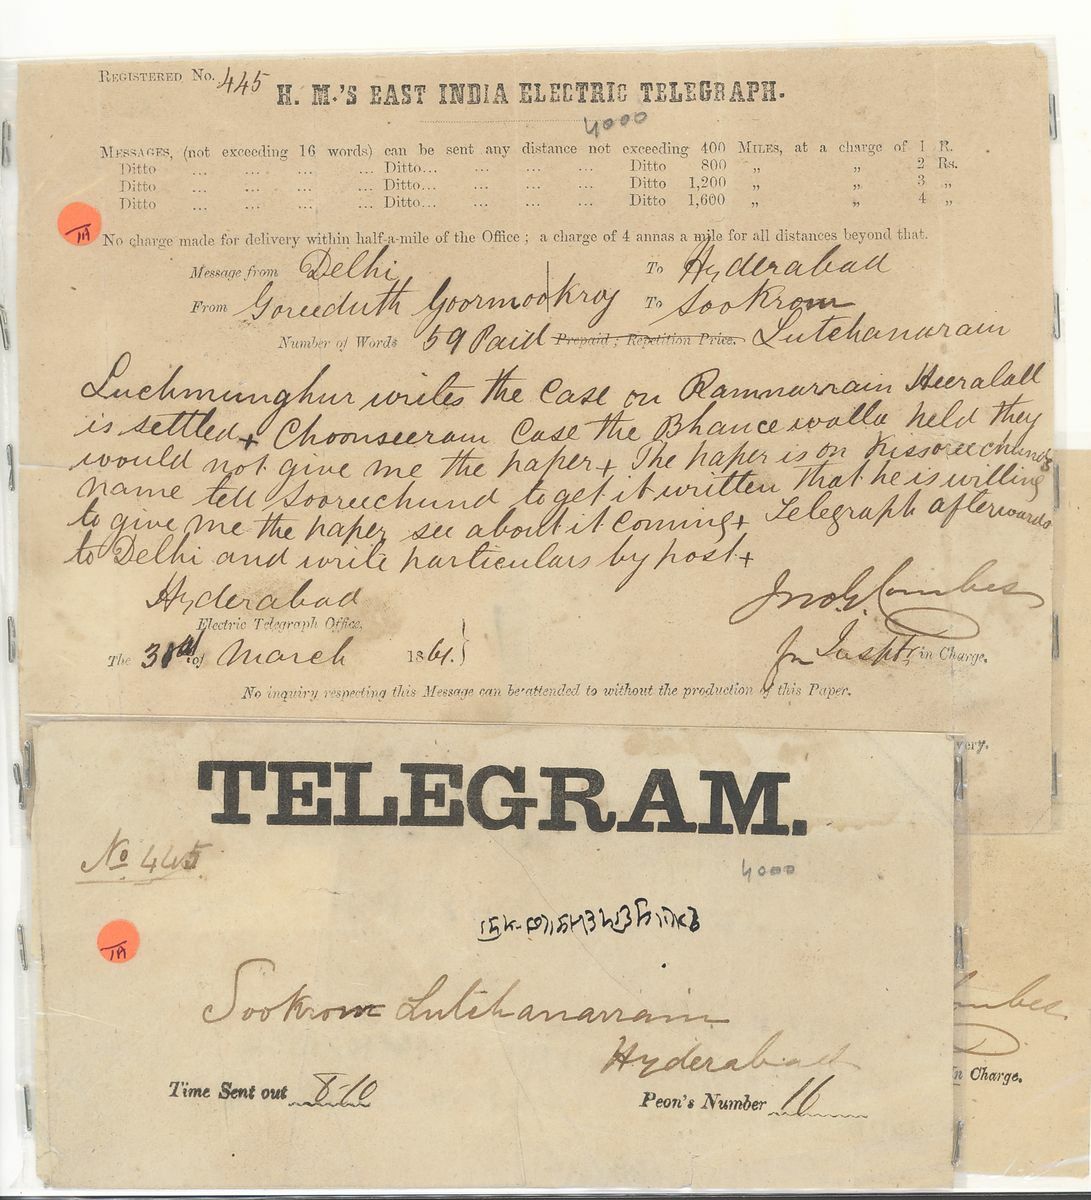 REGISTERED No. 445
H. M.'S EAST INDIA ELECTRIC TELEGRAPH.
4000
MESSAGES, (not exceeding 16 words) can be sent any distance not exceeding 400 MILES, at a charge of 1 R.
Ditto ... ... ... ... Ditto... ... ... ... Ditto 800 „ „ 2 Rs.
Ditto ... ... ... ... Ditto... ... ... ... Ditto 1,200 „ „ 3 „
Ditto ... ... ... ... Ditto... ... ... ... Ditto 1,600 „ „ 4 „
No charge made for delivery within half-a-mile of the Office; a charge of 4 annas a mile for all distances beyond that.
Message from Delhi To Hyderabad
From Goreeduth Goormookroy To Sookrom
Number of Words 59 Paid Prepaid; Repetition Price. Lutchanarain
Luchmunghur writes the case on Ramnarrain Heeralall
is settled + Choonseeram case the Bhancewalla held they
would not give me the paper + The paper is on Kissoreechund's
name tell Sooruchund to get it written that he is willing
to give me the paper see about it coming + Telegraph afterwards
to Delhi and write particulars by post +
Hyderabad
Electric Telegraph Office,
The of March 1861.
Jno G. Combes
for Inspr in Charge.
No inquiry respecting this Message can be attended to without the production of this Paper.
very.
TELEGRAM.
No 445
4000
Sookrom Lutchanarrain
Hyderabad
Time Sent out 8-10
Peon's Number 16
mbes
In Charge.